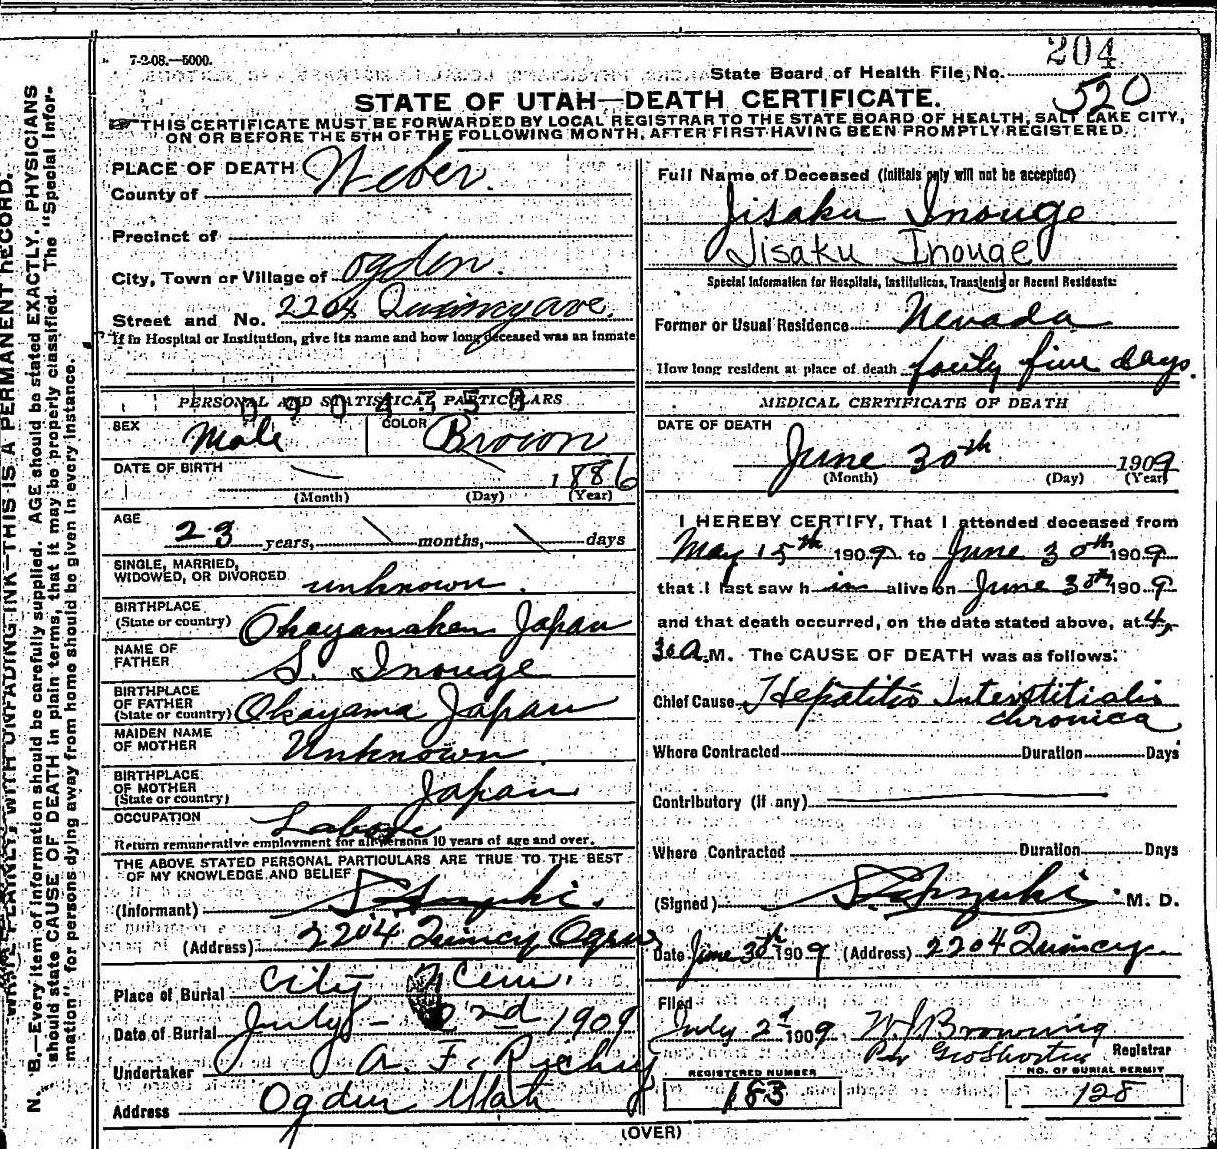 7-2-08.—5000.
204
State Board of Health File, No.
520
STATE OF UTAH—DEATH CERTIFICATE.
THIS CERTIFICATE MUST BE FORWARDED BY LOCAL REGISTRAR TO THE STATE BOARD OF HEALTH, SALT LAKE CITY,
ON OR BEFORE THE 5TH OF THE FOLLOWING MONTH, AFTER FIRST HAVING BEEN PROMPTLY REGISTERED.
WRITE PLAINLY, WITH UNFADING INK—THIS IS A PERMANENT RECORD.
N. B.—Every item of information should be carefully supplied. AGE should be stated EXACTLY. PHYSICIANS
should state CAUSE OF DEATH in plain terms, that it may be properly classified. The "Special Infor-
mation" for persons dying away from home should be given in every instance.
PLACE OF DEATH
County of Weber.
Precinct of
City, Town or Village of Ogden.
Street and No. 2204 Quincy ave.
If in Hospital or Institution, give its name and how long deceased was an inmate
PERSONAL AND STATISTICAL PARTICULARS
SEX Male COLOR Brown
DATE OF BIRTH 1886
(Month) (Day) (Year)
AGE
23 years, months, days
SINGLE, MARRIED,
WIDOWED, OR DIVORCED unknown.
BIRTHPLACE
(State or country) Okayamaken Japan
NAME OF
FATHER S. Inouge
BIRTHPLACE
OF FATHER
(State or country) Okayama Japan
MAIDEN NAME
OF MOTHER Unknown.
BIRTHPLACE
OF MOTHER
(State or country) Japan
OCCUPATION
Return remunerative employment for all persons 10 years of age and over.
THE ABOVE STATED PERSONAL PARTICULARS ARE TRUE TO THE BEST
OF MY KNOWLEDGE AND BELIEF
(Informant)
(Address) 2204 Quincy
Place of Burial City Cem.
Date of Burial July 2nd 1909
Undertaker A. F. Richey
Address Ogden Utah
Full Name of Deceased (Initials only will not be accepted)
Jisaku Inouge
Jisaku Inouge
Special Information for Hospitals, Institutions, Transients or Recent Residents:
Former or Usual Residence Nevada
How long resident at place of death fourty five days.
MEDICAL CERTIFICATE OF DEATH
DATE OF DEATH
June 30th 1909
(Month) (Day) (Year)
I HEREBY CERTIFY, That I attended deceased from
May 15th 1909 to June 30th 1909
that I last saw him alive on June 30th 1909
and that death occurred, on the date stated above, at 4,
30 A.M. The CAUSE OF DEATH was as follows:
Chief Cause Hepatitis Interstitialis
chronica
Where Contracted Duration Days
Contributory (If any)
Where Contracted Duration Days
(Signed) M. D.
Date June 30th 1909 (Address) 2204 Quincy
Filed
July 2d 1909 W J Browning
Per Geo Shorten Registrar
REGISTERED NUMBER
183
NO. OF BURIAL PERMIT
128
(OVER)